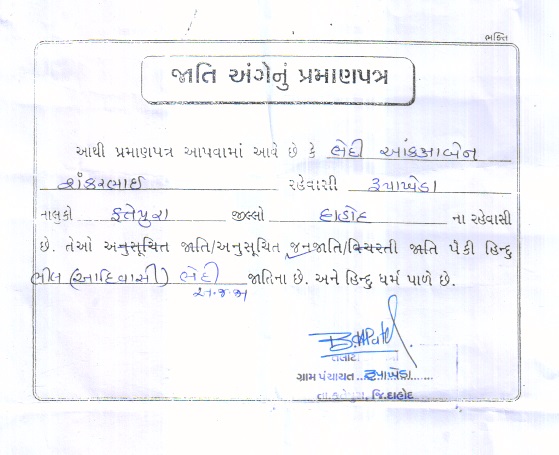 ભક્તિ
જાતિ અંગેનું પ્રમાણપત્ર
આથી પ્રમાણપત્ર આપવામાં આવે છે કે ભેદી
શંકરભાઈ રહેવાસી રૂપાખેડા
તાલુકો ફતેપુરા જીલ્લો દાહોદ ના રહેવાસી
છે. તેઓ અનુસૂચિત જાતિ/અનુસૂચિત જનજાતિ/વિચરતી જાતિ પૈકી હિન્દુ
ભીલ (આદિવાસી) ભેદી જાતિના છે. અને હિન્દુ ધર્મ પાળે છે.
અ.જ.જા
તલાટી
ગ્રામ પંચાયત રૂપાખેડા
જિ.દાહોદ